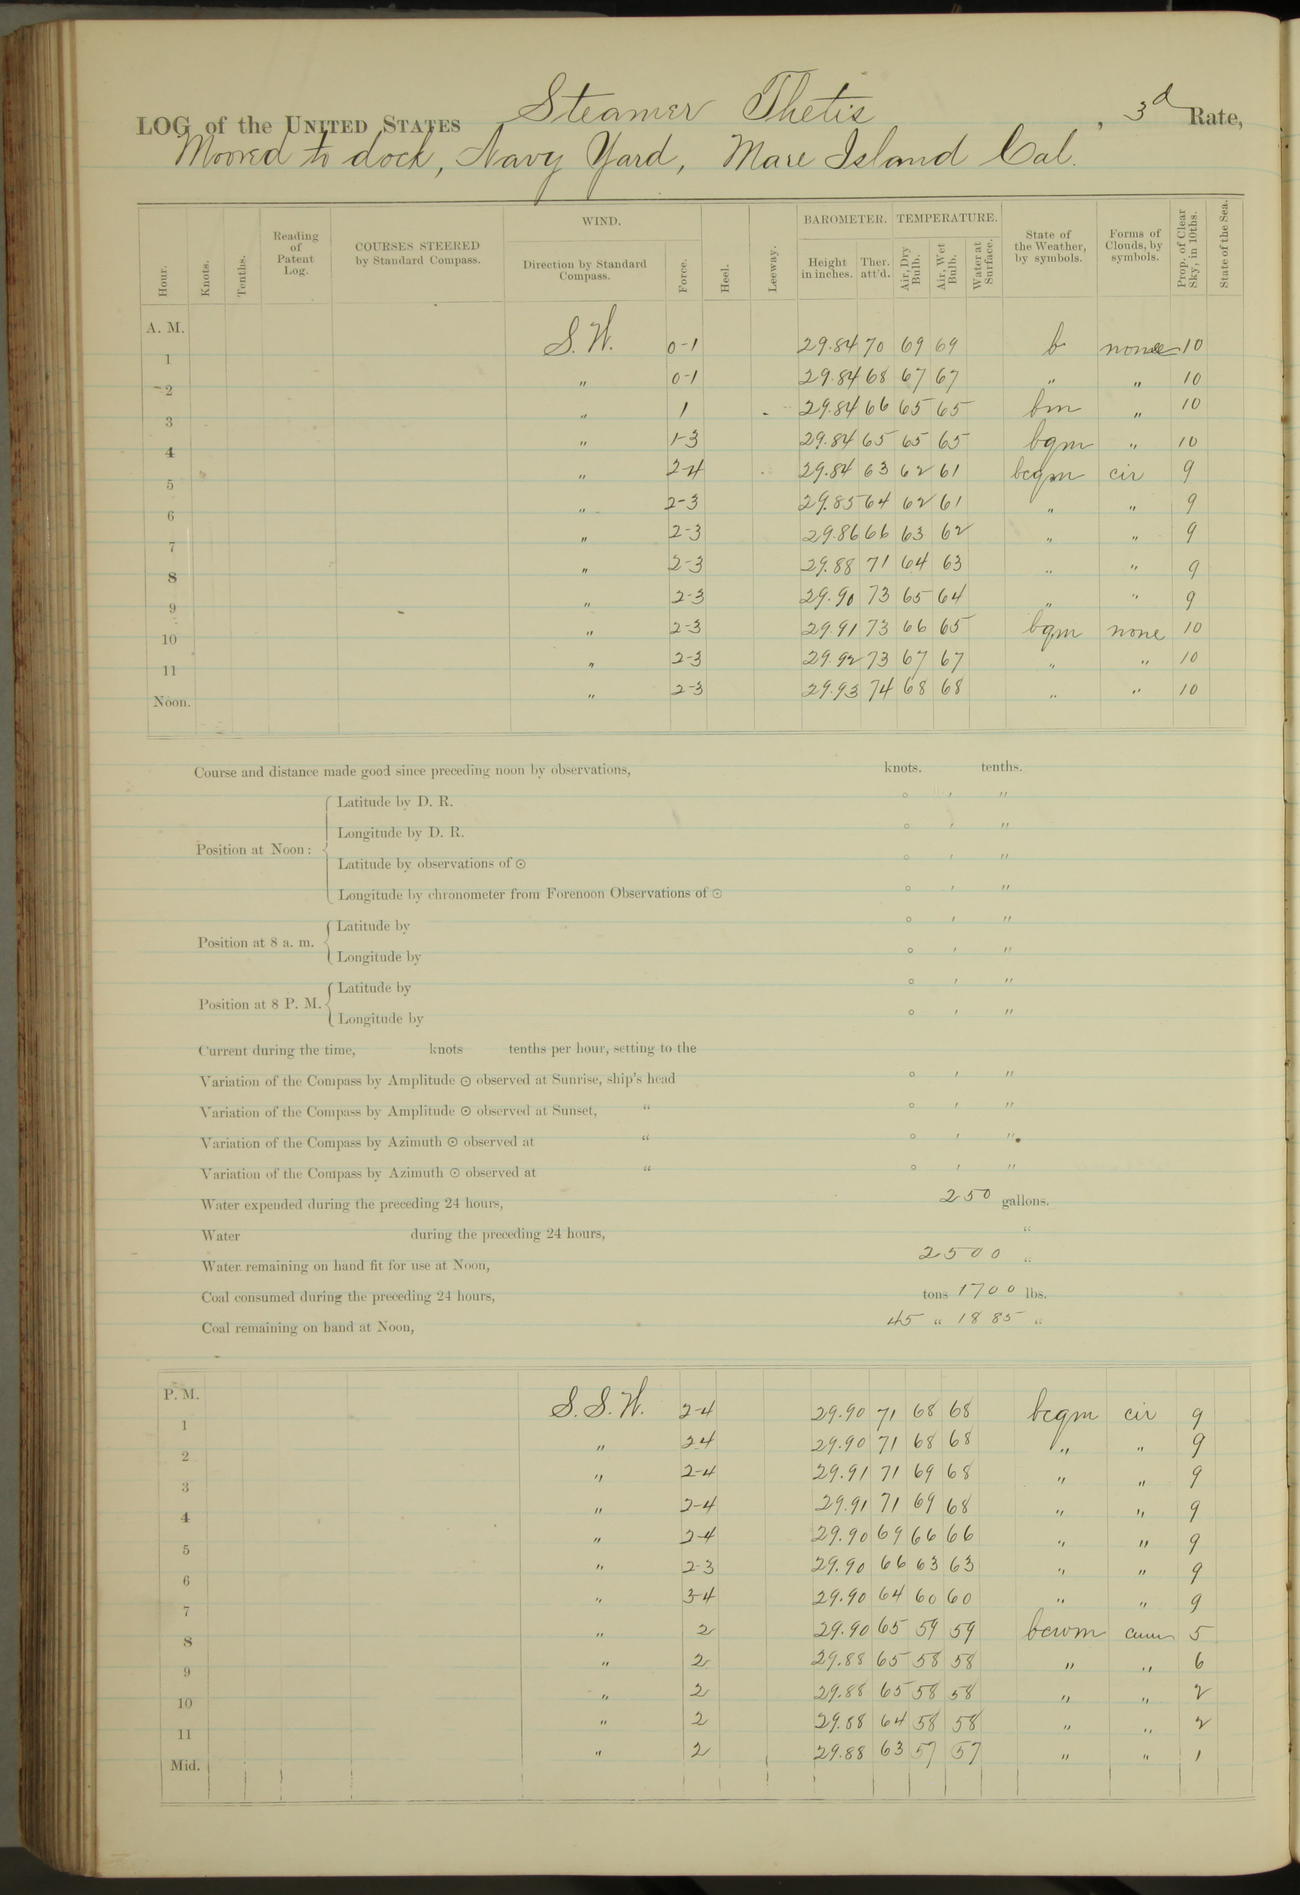 LOG of the UNITED STATES Steamer Thetis, 3d Rate,
Moored to dock, Navy Yard, Mare Island Cal.
Hour. Knots. Tenths. Reading of Patent Log. COURSES STEERED by Standard Compass. WIND. Direction by Standard Compass. Force. Heel. Leeway. BAROMETER. Height in inches. Ther. att'd. TEMPERATURE. Air, Dry Bulb. Air, Wet Bulb. Water at Surface. State of the Weather, by symbols. Forms of Clouds, by symbols. Prop. of Clear Sky, in 10ths. State of the Sea.
A. M.
1 S. W. 0-1 29.84 70 69 69 b none 10
2 " 0-1 29.84 68 67 67 " " 10
3 " 1 29.84 66 65 65 bm " 10
4 " 1-3 29.84 65 65 65 bqm " 10
5 " 2-4 29.84 63 62 61 bcqm cir 9
6 " 2-3 29.85 64 62 61 " " 9
7 " 2-3 29.86 66 63 62 " " 9
8 " 2-3 29.88 71 64 63 " " 9
9 " 2-3 29.90 73 65 64 " " 9
10 " 2-3 29.91 73 66 65 bqm none 10
11 " 2-3 29.92 73 67 67 " " 10
Noon. " 2-3 29.93 74 68 68 " " 10
Course and distance made good since preceding noon by observations, knots. tenths.
Latitude by D. R. ° ' "
Longitude by D. R. ° ' "
Position at Noon:
Latitude by observations of ☉ ° ' "
Longitude by chronometer from Forenoon Observations of ☉ ° ' "
Latitude by ° ' "
Position at 8 a. m.
Longitude by ° ' "
Latitude by ° ' "
Position at 8 P. M.
Longitude by ° ' "
Current during the time, knots tenths per hour, setting to the
Variation of the Compass by Amplitude ☉ observed at Sunrise, ship's head ° ' "
Variation of the Compass by Amplitude ☉ observed at Sunset, " ° ' "
Variation of the Compass by Azimuth ☉ observed at " ° ' "
Variation of the Compass by Azimuth ☉ observed at " ° ' "
Water expended during the preceding 24 hours, 250 gallons.
Water during the preceding 24 hours, "
Water remaining on hand fit for use at Noon, 2500 "
Coal consumed during the preceding 24 hours, tons 1700 lbs.
Coal remaining on hand at Noon, 45 " 1885 "
P. M.
1 S. S. W. 2-4 29.90 71 68 68 bcqm cir 9
2 " 2-4 29.90 71 68 68 " " 9
3 " 2-4 29.91 71 69 68 " " 9
4 " 2-4 29.91 71 69 68 " " 9
5 " 2-4 29.90 69 66 66 " " 9
6 " 2-3 29.90 66 63 63 " " 9
7 " 3-4 29.90 64 60 60 " " 9
8 " 2 29.90 65 59 59 bcwm cum 5
9 " 2 29.88 65 58 58 " " 6
10 " 2 29.88 65 58 58 " " 2
11 " 2 29.88 64 58 58 " " 2
Mid. " 2 29.88 63 57 57 " " 1